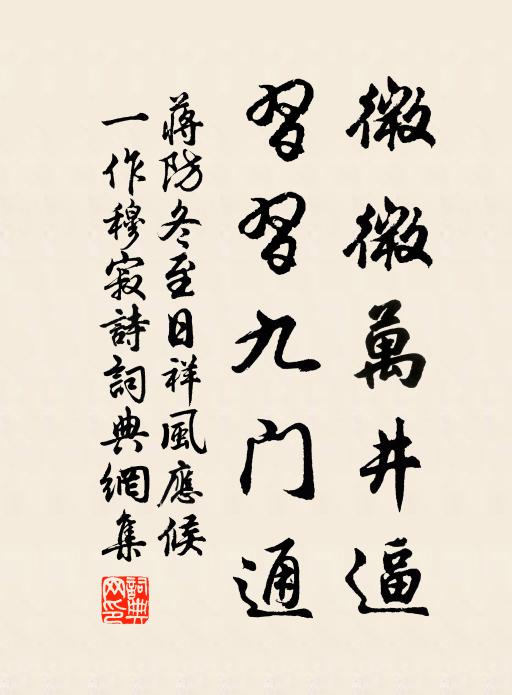 微微萬井逼
習習九门通
蔣防冬至日祥風應候
一作穆寂詩詞典網集